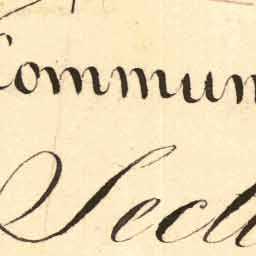 Commun
Sect